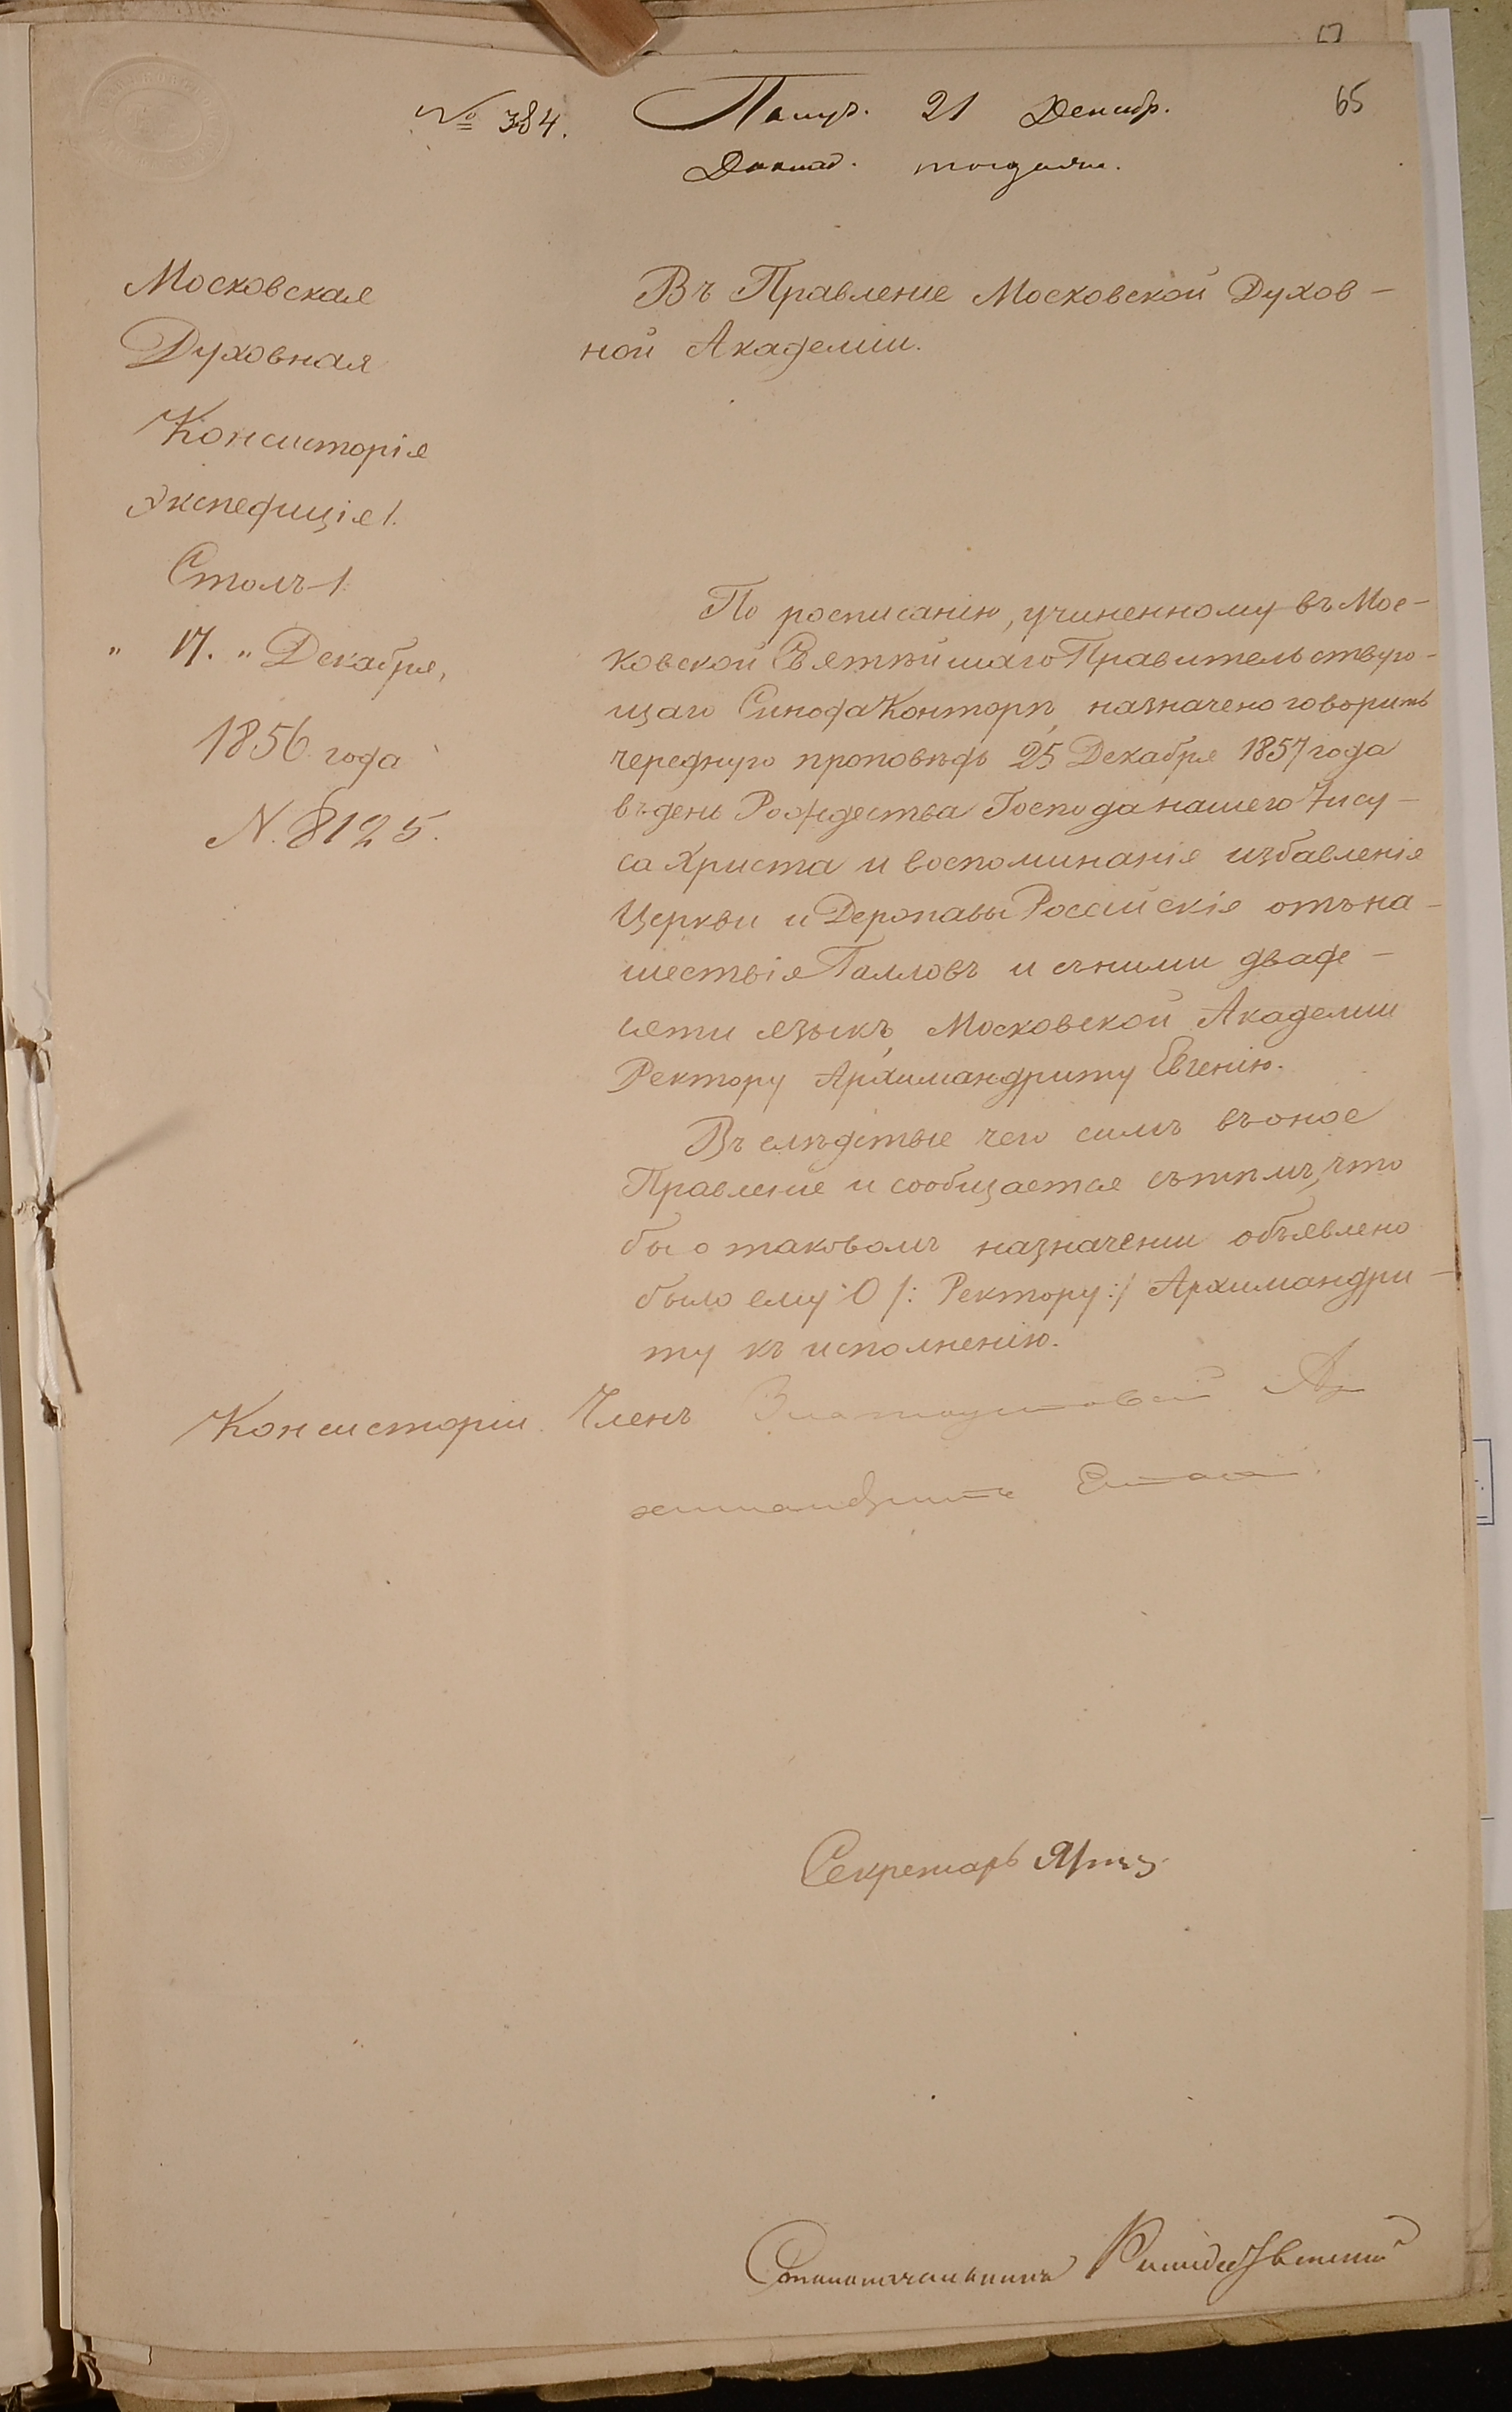 65
№ 384. Получ. 21 Декабр.
Доклад. тогдаже.
Московская
Духовная
Консисторія
Экспедиція 1.
Столъ 1
" 17. " Декабря,
1856 года
N. 8125.
Въ Правленіе Московской Духов-
ной Академіи.
По росписанію, учиненному въ Мос-
ковской Святѣйшаго Правительствую-
щаго Синода Конторѣ, назначено говорить
чередную проповѣдь 25 Декабря 1857 года
въ день Рождества Господа нашего Іису-
са Христа и воспоминанія избавленія
Церкви и Державы Россійскія отъ на-
шествія Галловъ и съ ними двадe-
сяти языкъ, Московской Академіи
Ректору Архимандриту Евгенію.
Въ слѣдствіе чего симъ въ оное
Правленіе и сообщается съ тѣмъ, что
бы о таковомъ назначеніи объявлено
было ему О /: Ректору :/ Архимандри-
ту къ исполненію.
Консисторіи Членъ Златоустовскій Ар
химандритъ
Секретарь
Столоначальникъ